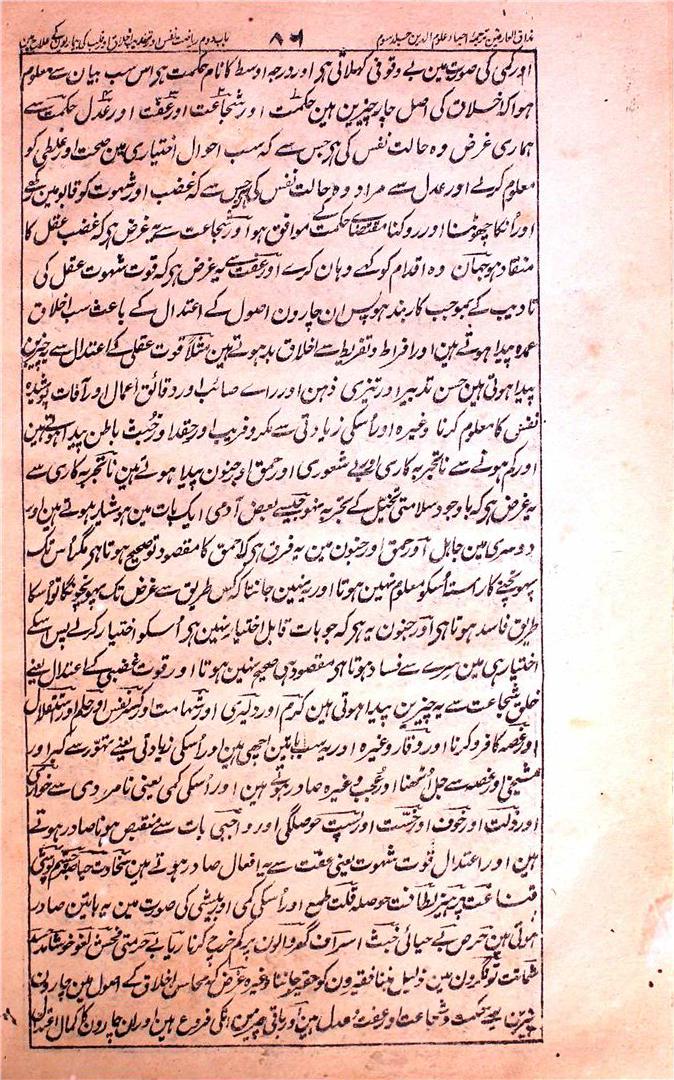 مذاق العارفین ترجمہ احیاء علوم الدین جلد سوم ۸۶ باب دوم ریاضت نفس اور تہذیب اخلاق اور قلب کی بیماریوں کے علاج میں
اور کمی کی صورت مین بے وقوفی کہلاتی ہی اور درجہ اوسط کا نام حکمت ہی اس سب بیان سے معلوم
ہوا کہ اخلاق کی اصل چار چیزین ہین حکمت اور شجاعت اور عفت اور عدل حکمت سے
ہماری غرض وہ حالت نفس کی ہی جس سے کہ سب احوال اختیاری مین صحت اور غلطی کو
معلوم کرلے اور عدل سے مراد وہ حالت نفس کی ہی جس سے کہ غضب اور شہوت کو قابو مین رکھے
اور انکا چھوڑنا اور روکنا مقتضاے حکمت کے موافق ہو اور شجاعت سے یہ غرض ہی کہ غضب عقل کا
منقاد ہو جہان وہ اقدام کو کہے وہان کرے اور عفت سے یہ غرض ہی کہ قوت شہوت عقل کی
تادیب کے بموجب کاربند ہو پس ان چارون اصول کے اعتدال کے باعث سب اخلاق
عمدہ پیدا ہوتے ہین اور افراط و تفریط سے اخلاق بد ہوتے ہین مثلاً قوت عقلی کے اعتدال سے یہ چیزین
پیدا ہوتی ہین حسن تدبیر اور تیزی ذہن اور راے صائب اور دقائق اعمال اور آفات پوشیدہ
نفس کا معلوم کرنا وغیرہ اور اسکی زیادتی سے مکر و فریب اور حقد اور خبث باطن پیدا ہوتے ہین
اور کم ہونے سے ناتجربہ کاری اور بے شعوری اور حمق اور جنون پیدا ہوتے ہین ناتجربہ کاری سے
یہ غرض ہی کہ باوجود سلامتی تخیل کے تجربہ نہو جیسے بعض آدمی ایک بات مین ہوشیار ہوتے ہین اور
دوسری مین جاہل اور حمق اور جنون مین یہ فرق ہی کہ احمق کا مقصود تو صحیح ہوتا ہی مگر اس تک
پہونچنے کا راستہ اسکو معلوم نہین ہوتا اور یہ نہین جانتا کہ کس طریق سے غرض تک پہونچونگا تو اسکا
طریق فاسد ہوتا ہی اور جنون یہ ہی کہ جو بات قابل اختیار نہین ہی اسکو اختیار کرلے پس اسکے
اختیار ہی مین سرے سے فساد ہوتا ہی مقصود ہی صحیح نہین ہوتا اور قوت غضبی کے اعتدال یعنے
خلق شجاعت سے یہ چیزین پیدا ہوتی ہین کرم اور دلیری اور شہامت اور کسر نفس اور حلم اور استقلال
اور غصہ کا فرو کرنا اور وقار وغیرہ اور یہ سب باتین اچھی ہین اور اسکی زیادتی یعنے تہور سے کبر اور
شیخی اور غصہ سے جل اٹھنا اور عجب وغیرہ صادر ہوتے ہین اور اسکی کمی یعنی نامردی سے خواری
اور ذلت اور خوف اور خست اور پست حوصلگی اور واجبی بات سے منقبض ہونا صادر ہوتے
ہین اور اعتدال قوت شہوت یعنی عفت سے یہ افعال صادر ہوتے ہین سخاوت حیا صبر چشم پوشی
قناعت پرہیز لطافت حوصلہ قلت طمع اور اسکی کمی اور بیشی کی صورت مین یہ باتین صادر
ہوتی ہین حرص بے حیائی خبث اسراف گھر والون پر کم خرچ کرنا ریا بے حرمتی فحش لغو خوشامد حسد
شماتت تونگرون مین ذلیل بننا فقیرون کو حقیر جاننا وغیرہ غرض کہ محاسن اخلاق کے اصول مین چار ہی
چیزین یعنے حکمت و شجاعت اور عفت و عدل ہین اور باقی چیزین انکی فروع ہین اور ان چارون کا کمال اعتدال